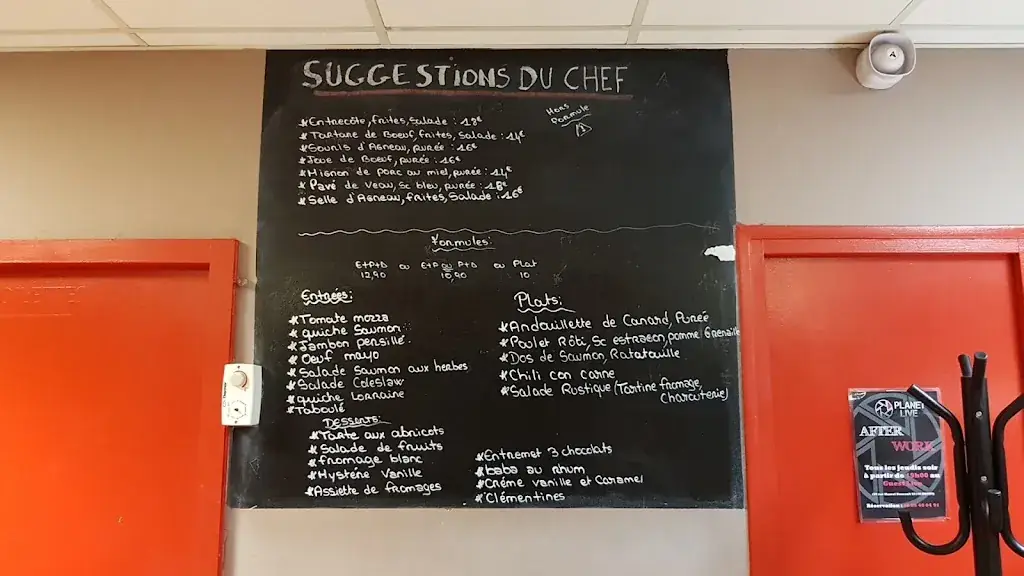 SUGGESTIONS DU CHEF
Hors
Formule
*Entrecôte, frites, salade : 18€
*Tartare de Boeuf, frites, Salade : 14€
*Souris d'Agneau, purée : 16€
*Joue de Boeuf, purée : 16€
*Mignon de porc au miel, purée : 14€
*Pavé de Veau, Sc bleu, purée : 18€
*Selle d'Agneau, frites, Salade : 16€
Formules:
E+P+D ou E+P ou P+D ou Plat
12,90 10,90 10
Entrées:
*Tomate mozza
*quiche Saumon
*Jambon persillé
*Oeuf mayo
*Salade Saumon aux herbes
*Salade Coleslaw
*quiche Lorraine
*Taboulé
Plats:
*Andouillette de Canard, Purée
*Poulet Rôti, Sc estragon, pomme Grenaille
*Dos de Saumon, Ratatouille
*Chili con carne
*Salade Rustique (Tartine fromage,
Charcuterie)
DESSERTS:
*Tarte aux abricots
*Salade de fruits
*fromage blanc
*Mystère Vanille
*Assiette de fromages
*Entremet 3 chocolats
*baba au rhum
*Crème vanille et Caramel
*Clémentines
PLANET
LIVE
AFTER
WORK
Tous les jeudis soir
à partir de au